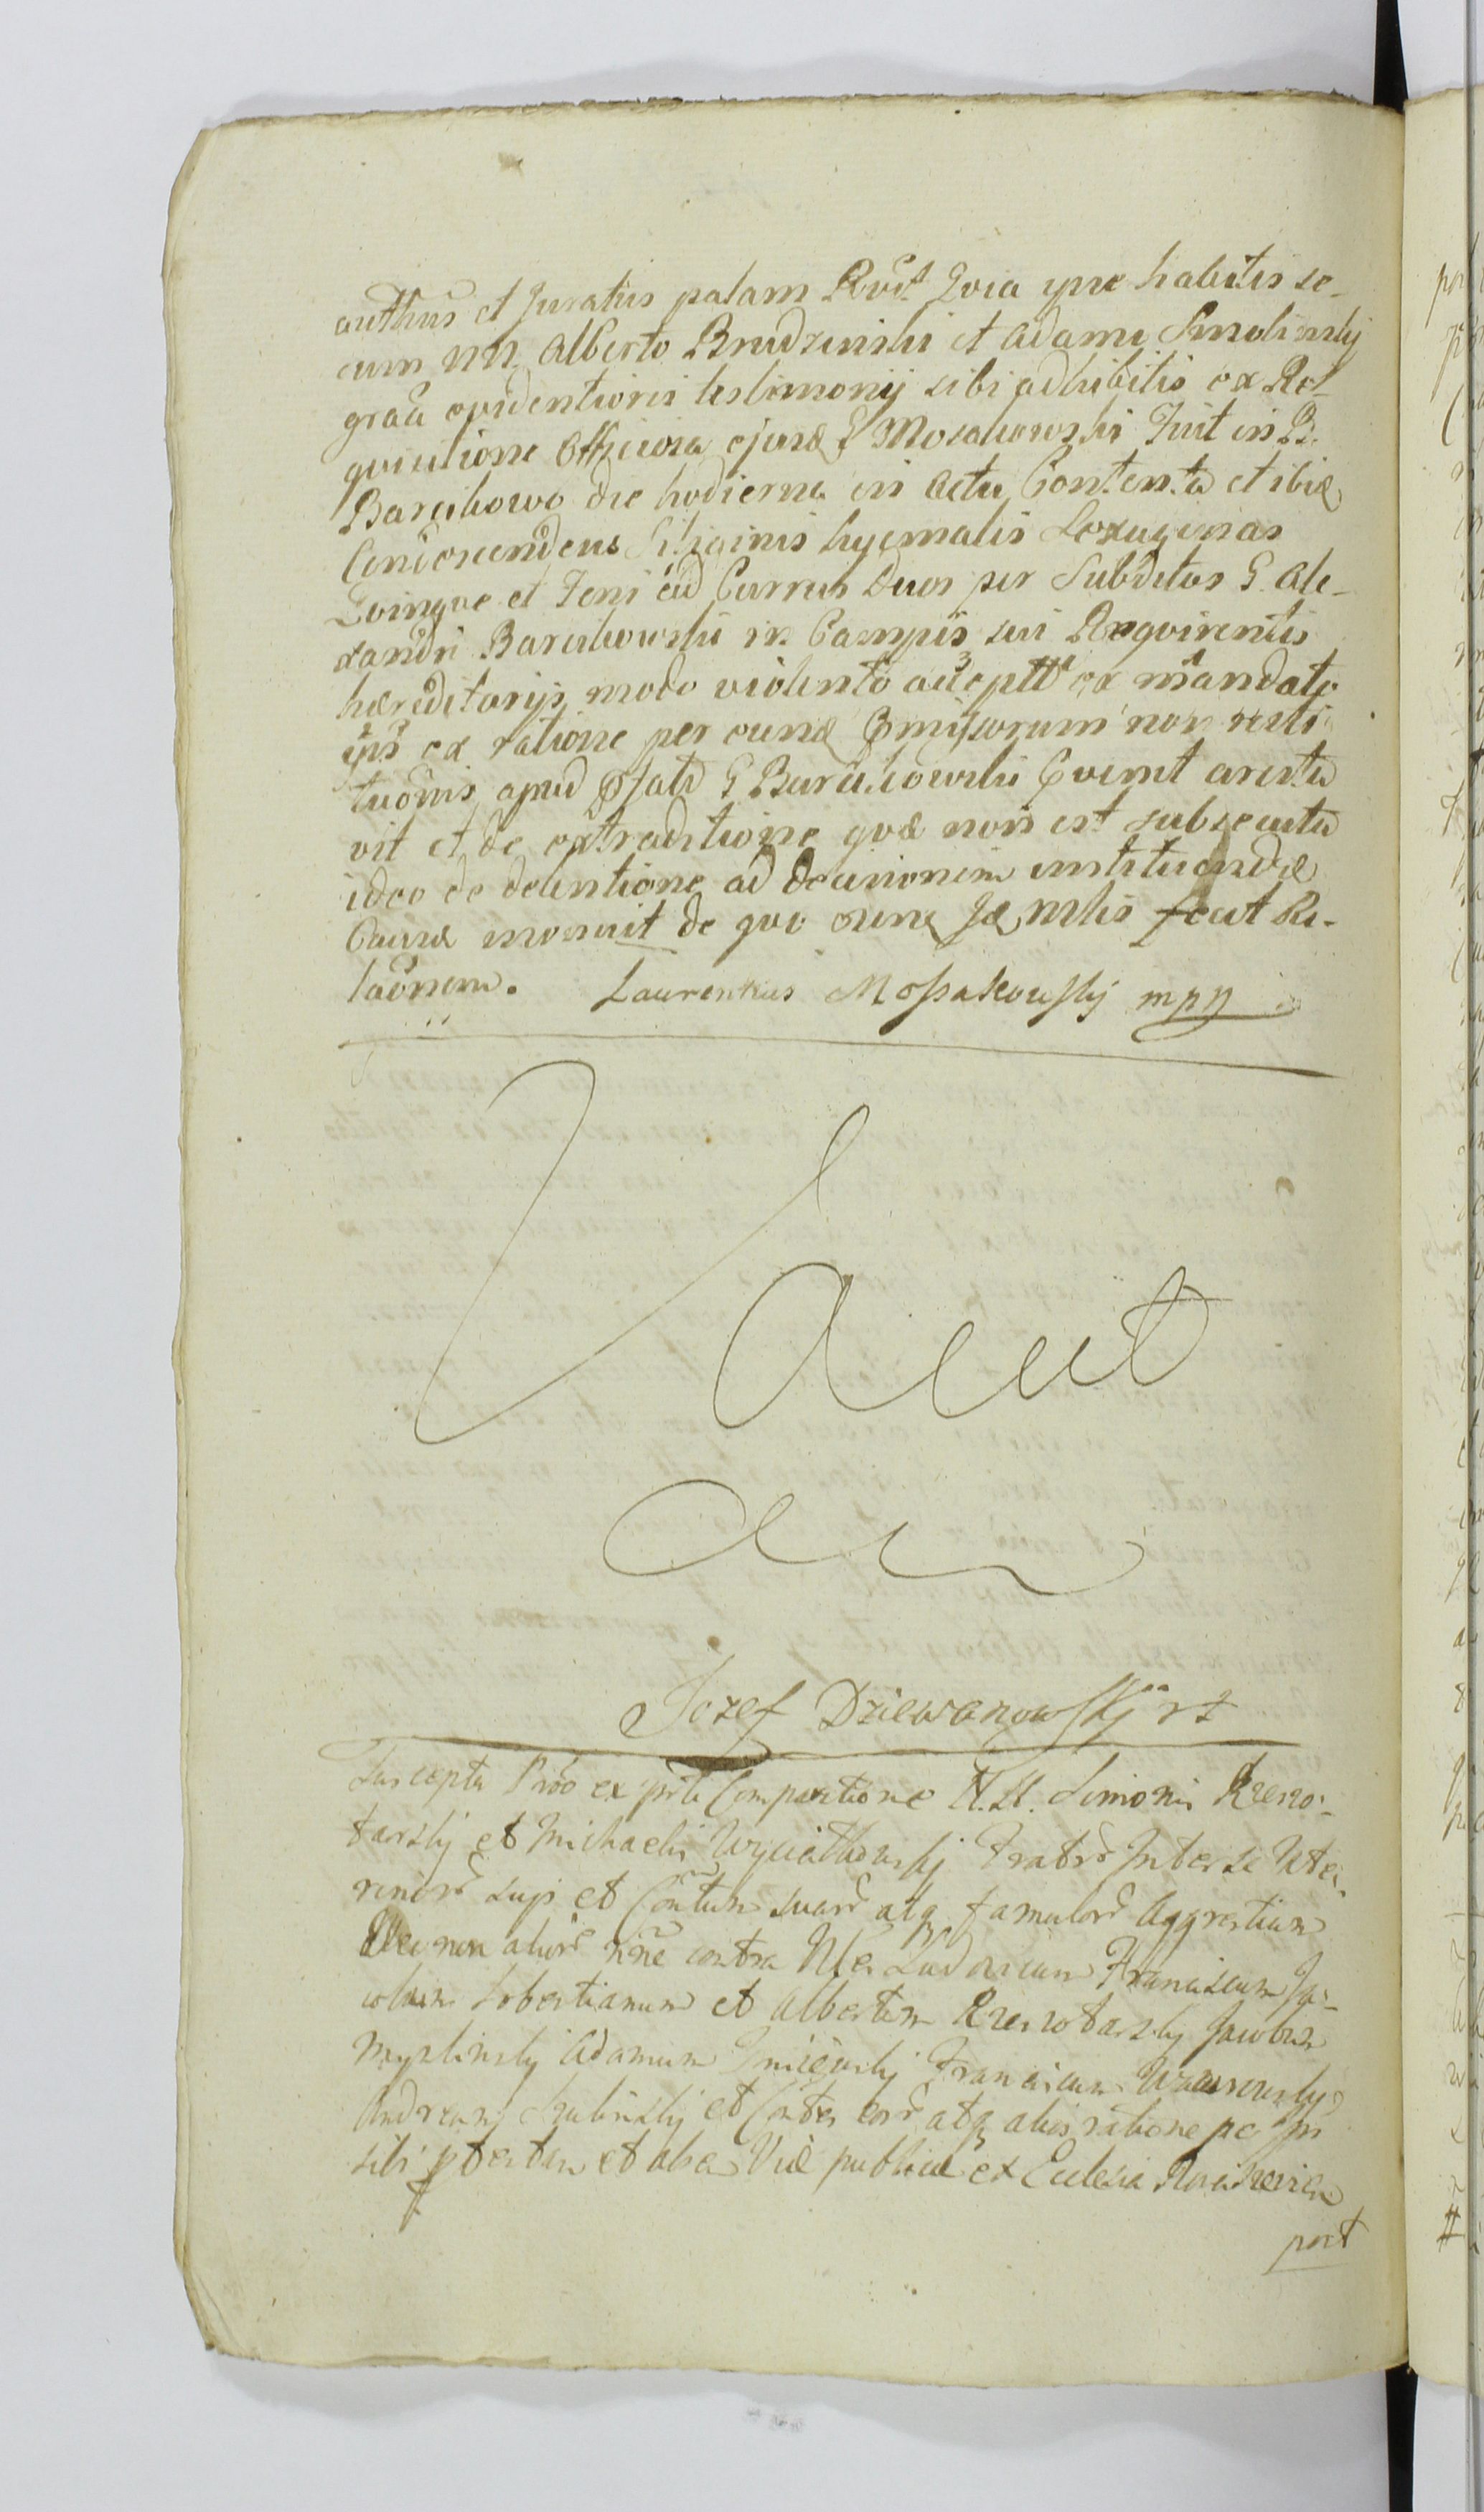 authus et Juratus palam Rvdt Qvia ipse habitis se-
cum NN. Alberto Brudzinski et Adamo Smolinsky
gratia evidentioris testimonij sibi adhibitis ex Re-
qvisitione Officiosa ejusd G Mosakowski Fuit in B.
Barcikowo die hodierna in Actu Contenta et ibid
Condescendens Siliginis hyemalis Sexagenas
Qvinqve et Feni ad Currus Duos per Subditos G. Ale-
xandri Barcikowski in Campis sui Reqvirentis
hæreditarijs modo violento accept ex mandato
ips ex ratione per eund Comissorum non resti
tuonis apud Gfatu G Barcikowski Evenit aresta
vit et de extraditione qvæ non est subsecuta
ideo de detentione ad decisionem instituendæ
Causæ monuit de qvo eund Jd Mlis fecit Re-
laonem. Laurentius Mosakowskj mpp
Vacat
Jozef Dziewanowskj
Suscepta Pro ex prte Comparitione N.N. Simonis Rzeszo-
tarskj et Michaelis Wyciatkowskj Fratrr Inter se Ute-
rinorr sup et Contum suarr atq famulorr Aggrestium
nec non aliorr nne contra N Ludovicum Franciscum Ja-
cobum Sobestianum et Albertum Rzeszotarskj Jacobum
Myslinskj Adamum Franciscum
Andream et Contes eorr atq alios ratione
sibi et alia Viæ publicæ ex Ecclesia
post